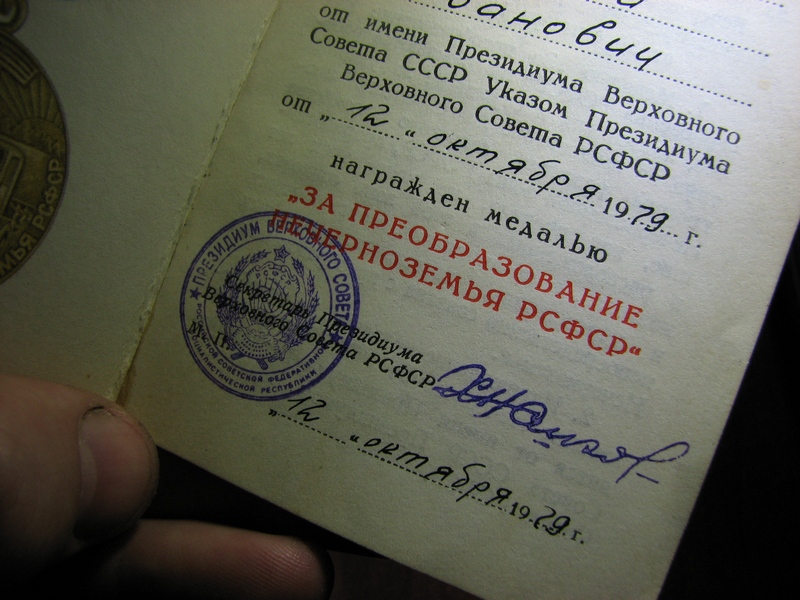 ванович
от имени Президиума Верховного
Совета СССР Указом Президиума
Верховного Совета РСФСР
от „ 12 “ октября 1979 г.
награжден медалью
„ЗА ПРЕОБРАЗОВАНИЕ
НЕЧЕРНОЗЕМЬЯ РСФСР“
Секретарь Президиума
Верховного Совета РСФСР
М. П.
„ 12 “ октября 1979 г.
ПРЕЗИДИУМ ВЕРХОВНОГО СОВЕТА
РОССИЙСКОЙ СОВЕТСКОЙ ФЕДЕРАТИВНОЙ
СОЦИАЛИСТИЧЕСКОЙ РЕСПУБЛИКИ
РСФСР